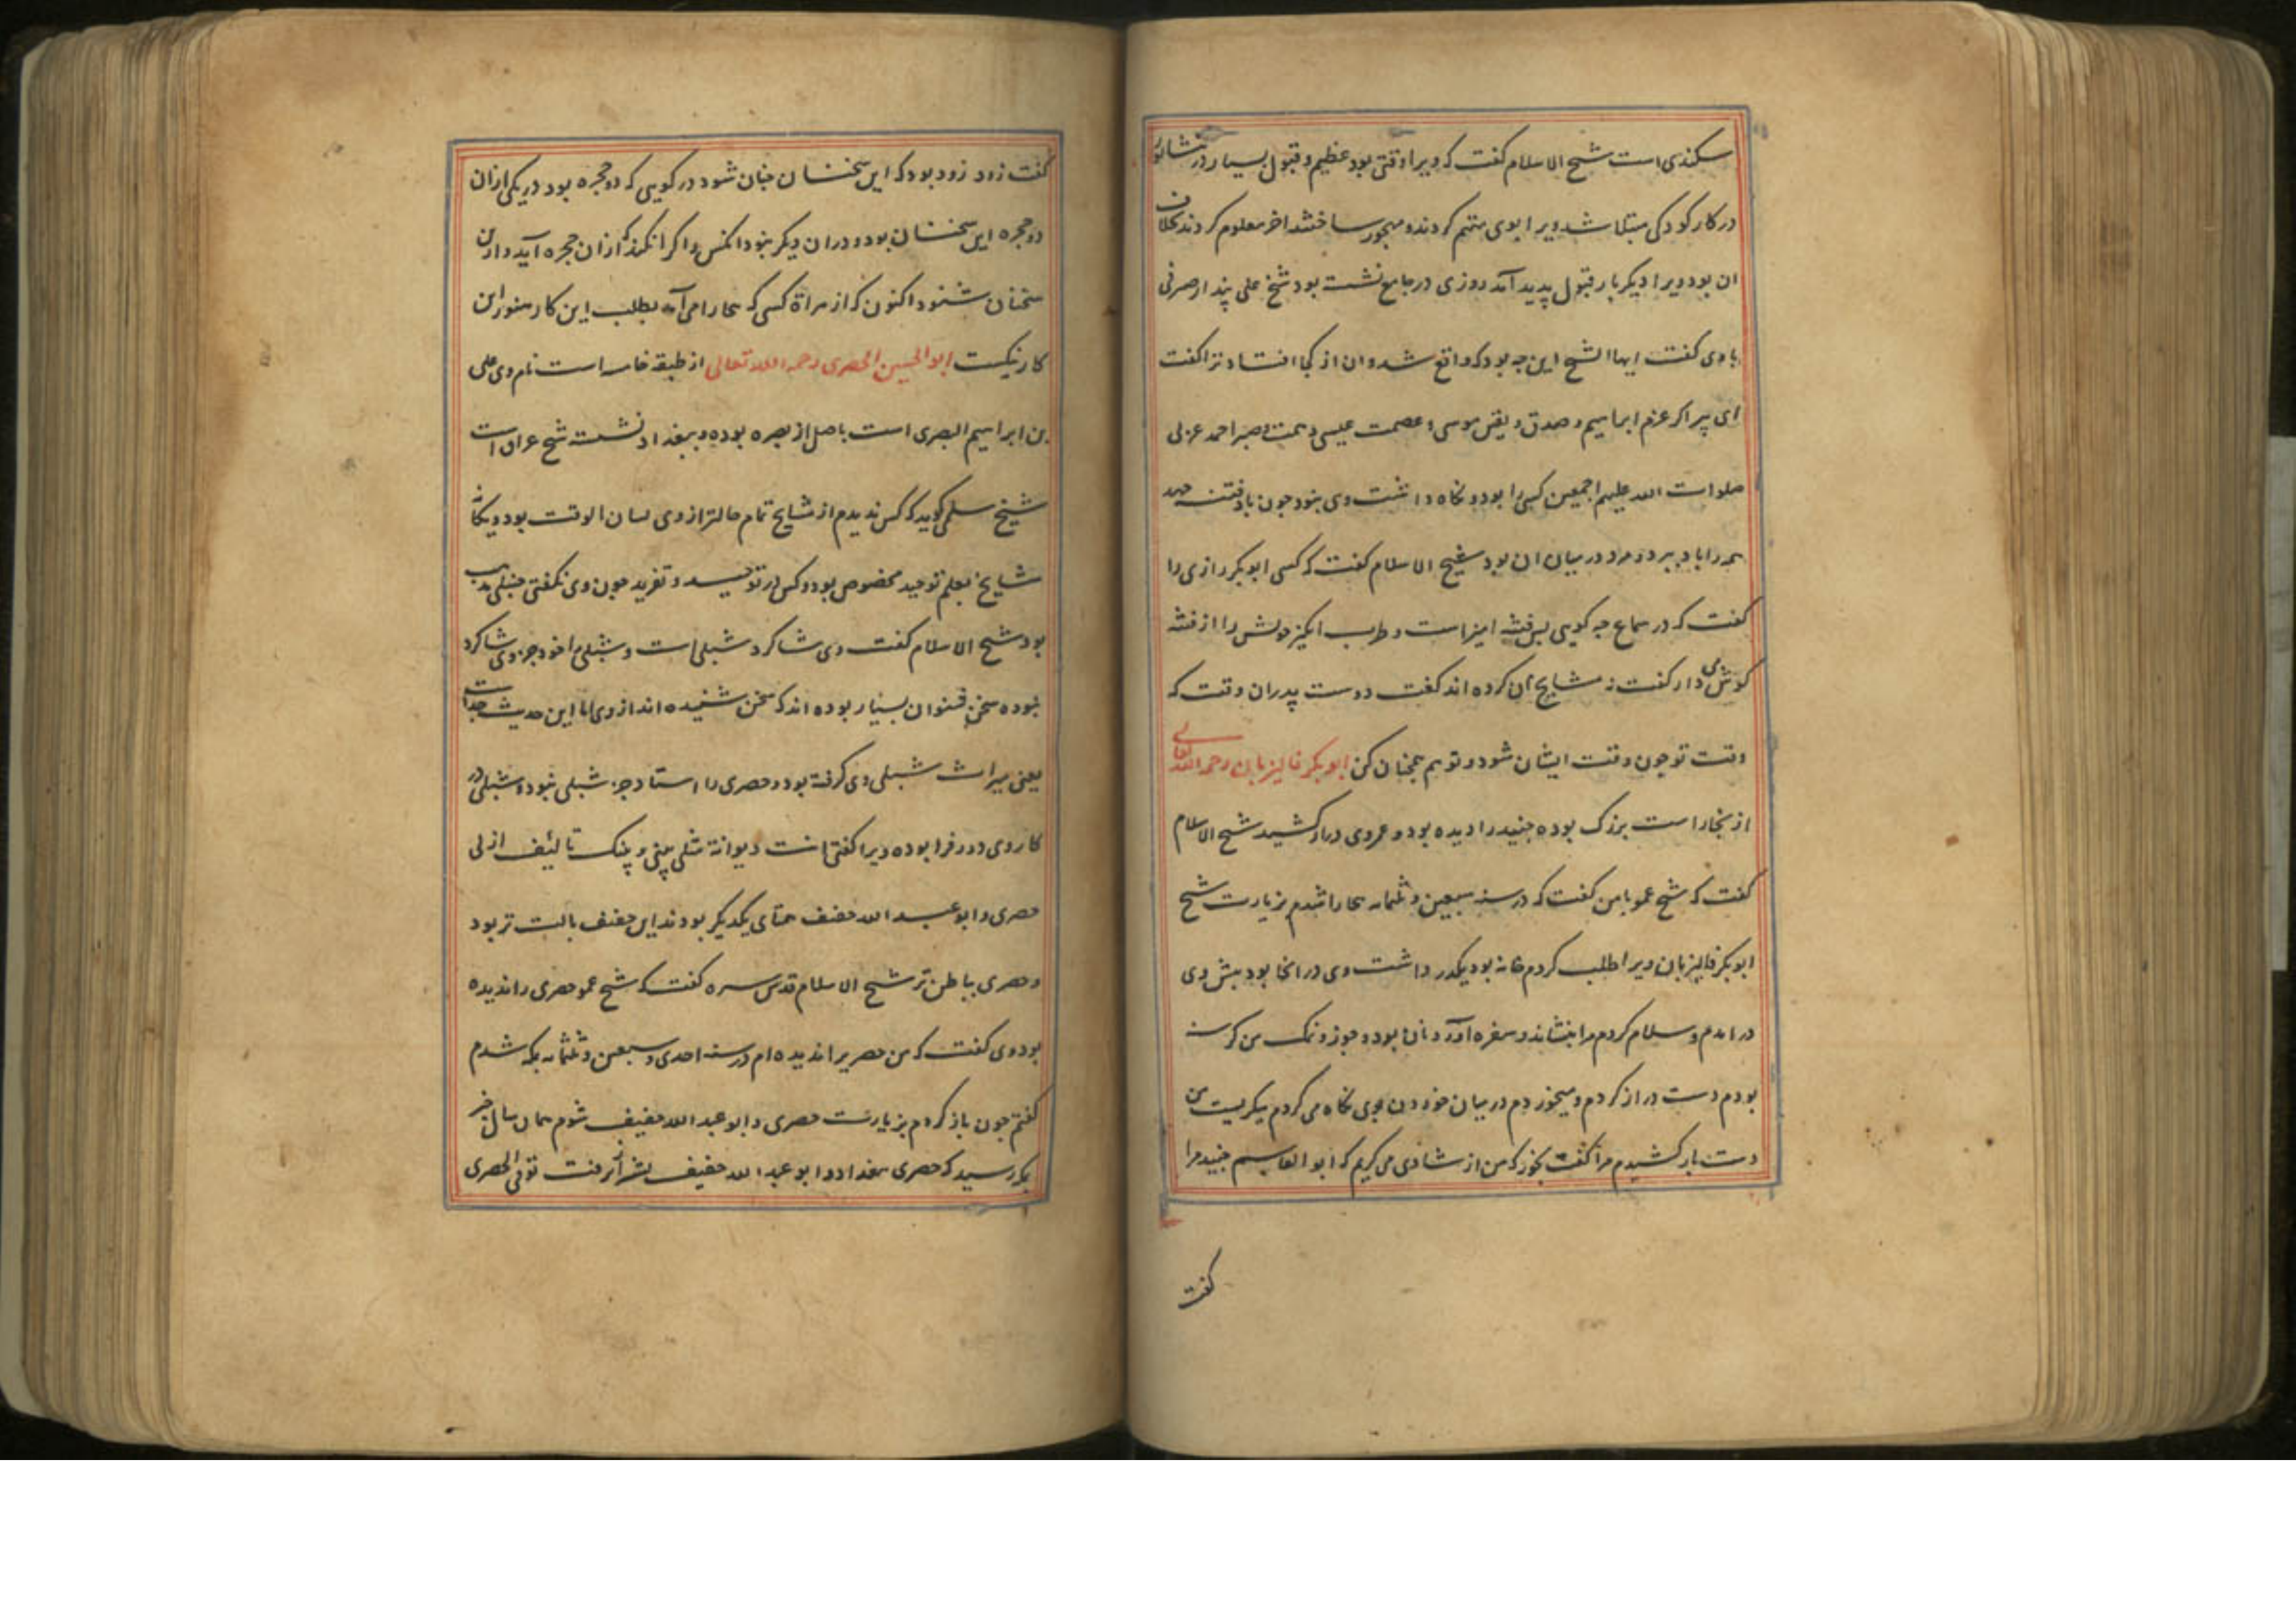 سکندی است شیخ الاسلام کفت که ویرا وقتی بود عظیم و قبول بسیار در نشابور
در کار کودکی مبتلا شد ویرا بوی متهم کردند و مهجور ساختند اخر معلوم کردند که خلاف
ان بود ویرا دیکر بار قبول پدید آمد روزی در جامع نشسته بود شیخ علی بندار صیرفی
با وی کفت ایها الشیخ این چه بود که واقع شد و ان از کجا افتاد ترا کفت
ای پیر اکر عزم ابراهیم و صدق و یقین موسی و عصمت عیسی و همت و صبر احمد عربی
صلوات الله علیهم اجمعین کسی را بود و نکاه داشت وی نبود چون باد فتنه جهد
همه را باد ببرد و مرد در میان ان بود شیخ الاسلام کفت که کسی ابوبکر رازی را
کفت که در سماع چه کویی بس فتنه امیز است و طرب انکیز خویش را از فتنه
کوش می دار کفت نه مشایخ آن کرده اند کفت دوست پدر ان وقت که
وقت تو چون وقت ایشان شود تو هم چنان کن ابوبکر فالیزبان رحمه الله تعالی
از بخارا است بزرک بوده جنید را دیده بود و عمر وی دراز کشید شیخ الاسلام
کفت که شیخ عمو با من کفت که در سنه سبعین و ثلثمایه بخارا شدم بزیارت شیخ
ابوبکر فالیزبان ویرا طلب کردم خانه بود یکدر داشت وی در انجا بود پیش وی
در امدم و سلام کردم مرا بنشاند و سفره آورد نان بود و جوز و نمک من کرسنه
بودم دست دراز کردم و میخوردم در میان خوردن بوی نکاه می کردم میکریست من
دست باز کشیدم مرا کفت بخور که من از شادی می کریم که ابو القاسم جنید مرا
کفت
کفت زود زود بود که این سخنشان چنان شود در کویی که دو حجره بود در یکی از ان
دو حجره این سخنشان بود و در ان دیکر نبود انکس را کرا نکند که از ان حجره آید و از این
سخنان شنود اکنون که از هراة کسی که بخارا می آید بطلب این کار هنوز این
کار نیکست ابو الحسین الحصری رحمه الله تعالی از طبقه خامسه است نام وی علی
بن ابراهیم البصری است باصل از بصره بوده و ببغداد نشست شیخ عراق است
شیخ سلمی کوید که کس ندیدم از مشایخ تمام حالتر از وی لسان الوقت بود و یکانه
مشایخ بعلم توحید مخصوص بود و کس در توحید و تفرید چون وی نکفتی حنبلی مذهب
بود شیخ الاسلام کفت وی شاکرد شبلی است و شبلی را خود جز وی شاکرد
نبوده سخن شنوان بسیار بوده اند که سخن شنیده اند از وی اما این حدیث جداست
یعنی میراث شبلی وی کرفته بود و حصری را استاد جز شبلی نبود و شبلی در
کار وی دور فرا بوده ویرا کفتی انت دیوانة مثلی بینی و بینک تالیف ازلی
حصری و ابو عبد الله خفیف همتای یکدیکر بودند این خفیف بالت تر بود
و حصری بباطن تر شیخ الاسلام قدس سره کفت که شیخ عمو حصری را ندیده
بود وی کفت که من حصریرا ندیده ام در سنه احدی و سبعین و ثلثمایه بمکه شدم
کفتم چون باز کردم بزیارت حصری و ابو عبد الله خفیف شوم همان سال خبر
بمکه رسید که حصری ببغداد و ابو عبد الله خفیف بشیراز برفت توفی الحصری